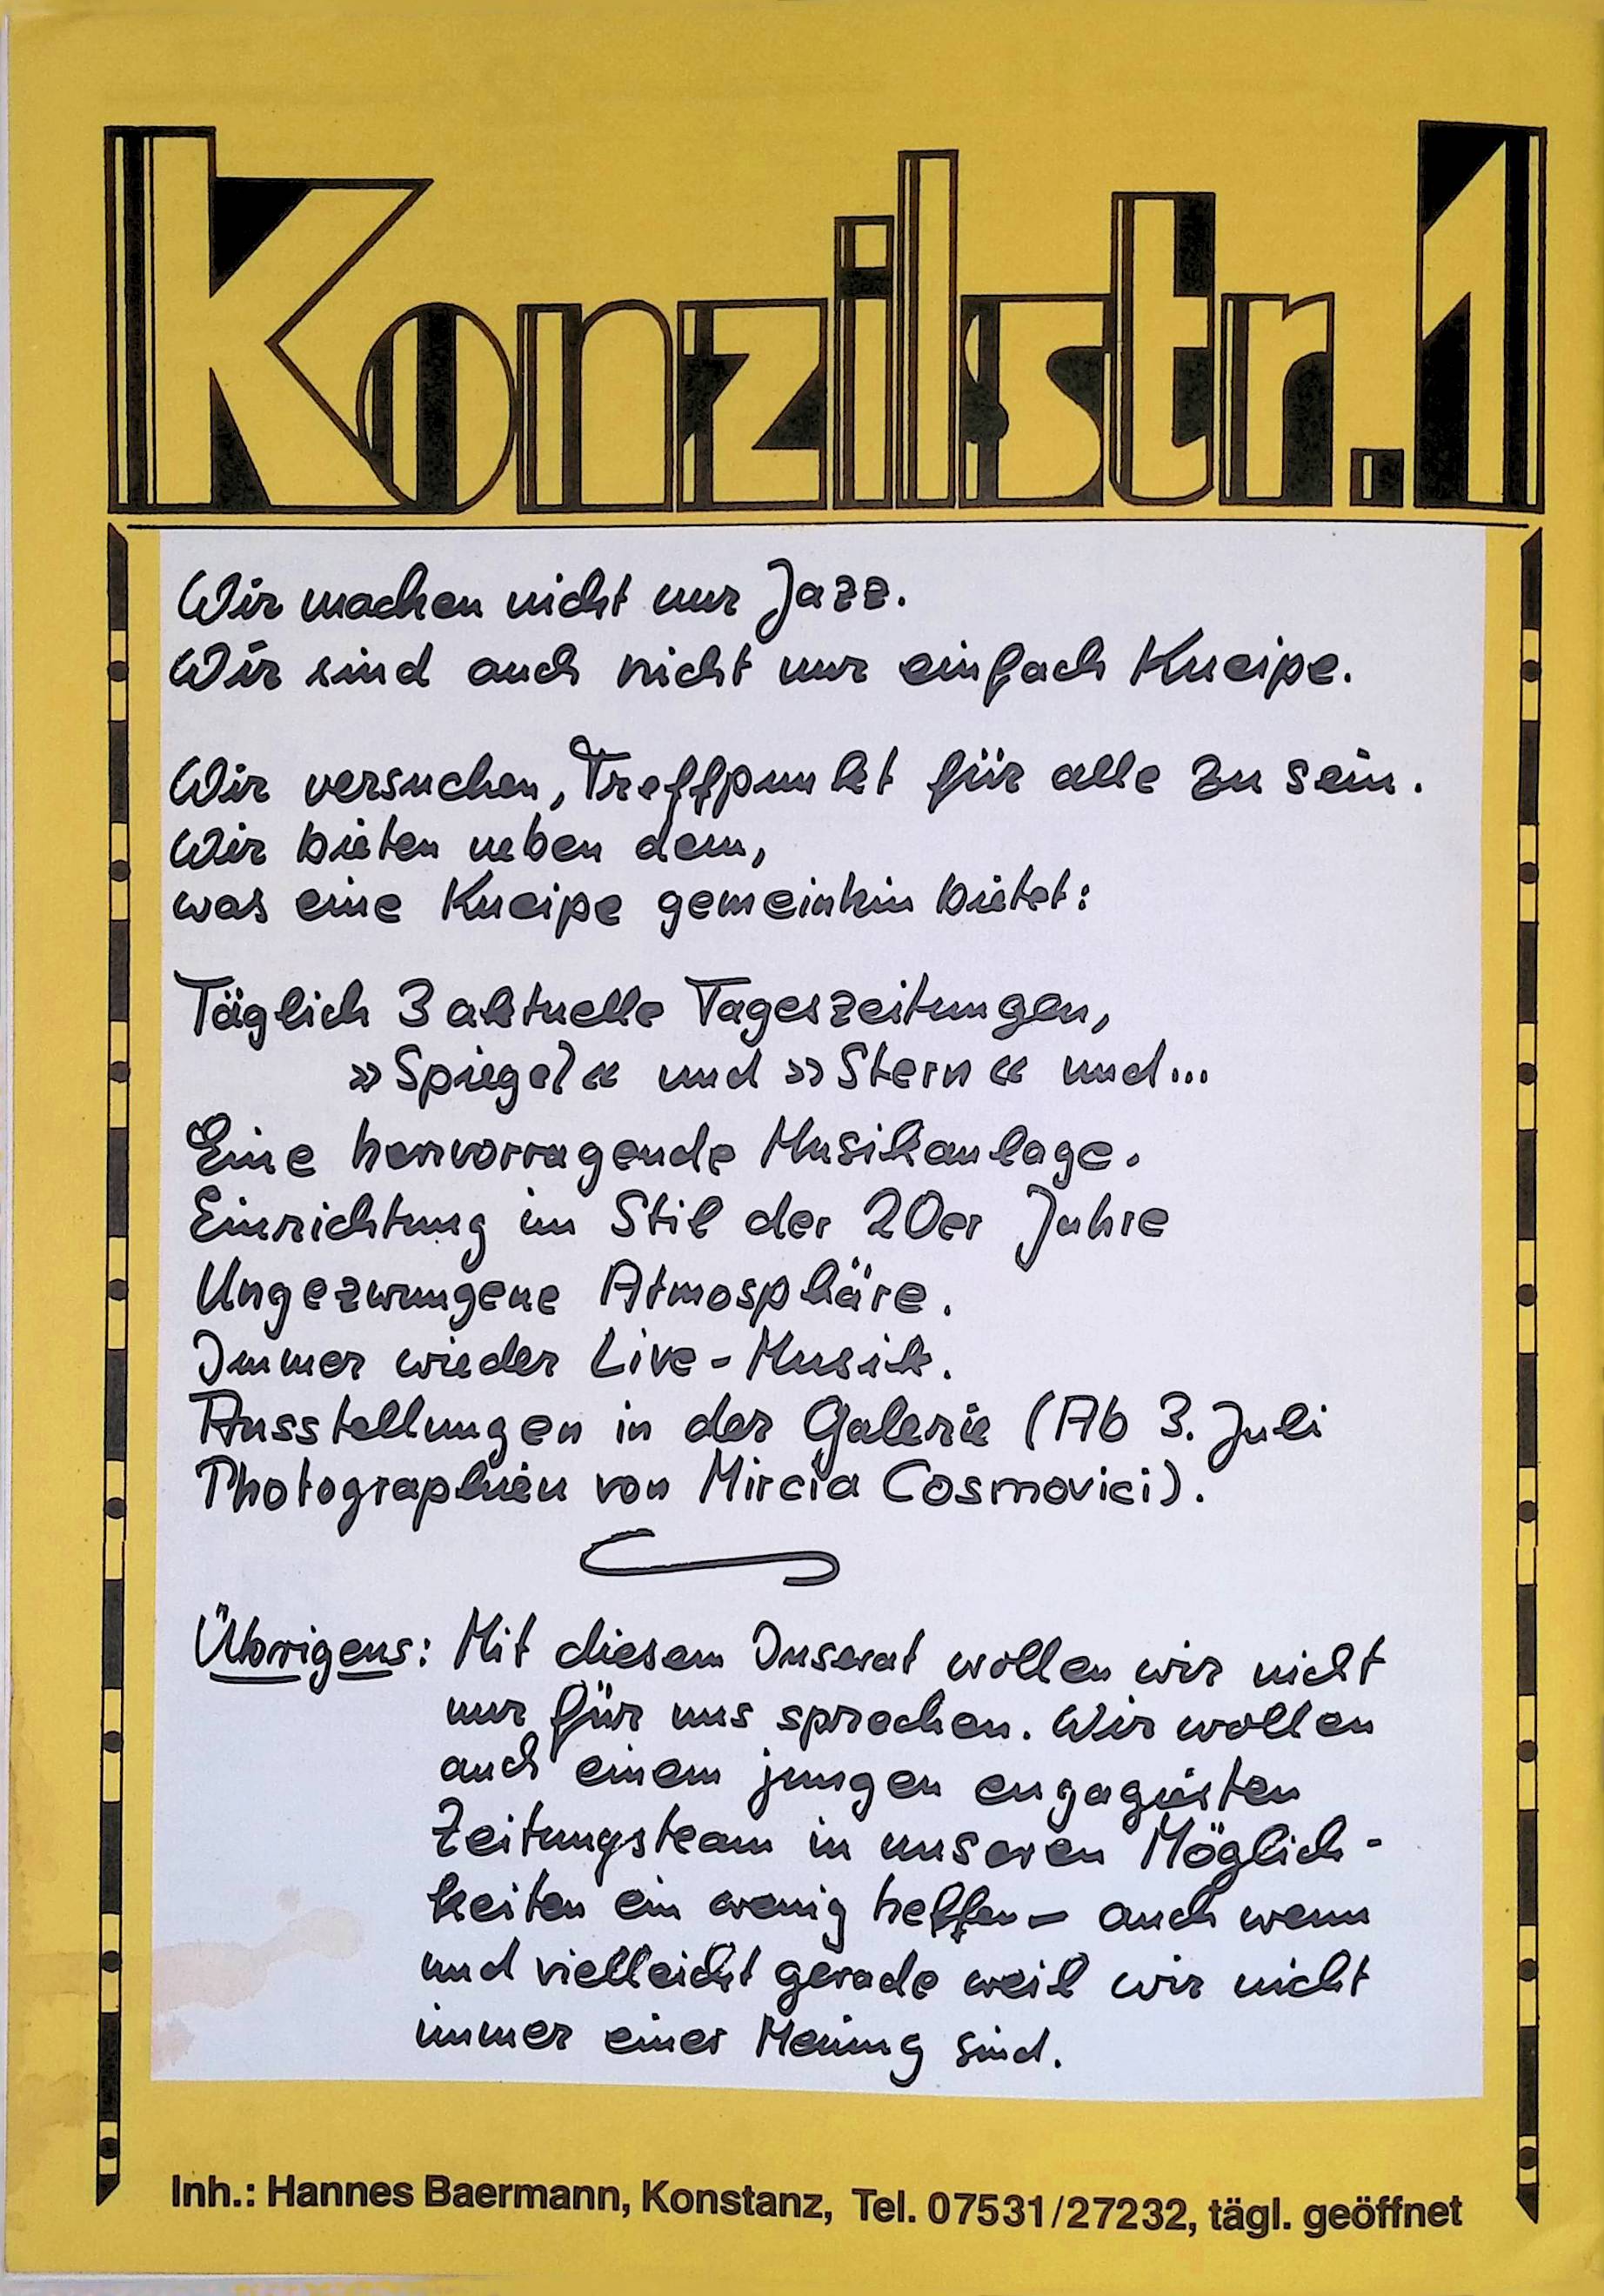 Konzilstr.1
Wir machen nicht nur Jazz.
Wir sind auch nicht nur einfach Kneipe.
Wir versuchen, Treffpunkt für alle zu sein.
Wir bieten neben dem,
was eine Kneipe gemeinhin bietet:
Täglich 3 aktuelle Tageszeitungen,
»Spiegel« und »Stern« und...
Eine hervorragende Musikanlage.
Einrichtung im Stil der 20er Jahre
Ungezwungene Atmosphäre.
Immer wieder Live-Musik.
Ausstellungen in der Galerie (Ab 3. Juli
Photographien von Mircia Cosmovici).
Übrigens: Mit diesem Inserat wollen wir nicht
nur für uns sprechen. Wir wollen
auch einem jungen engagierten
Zeitungsteam in unseren Möglich-
keiten ein wenig helfen - auch wenn
und vielleicht gerade weil wir nicht
immer einer Meinung sind.
Inh.: Hannes Baermann, Konstanz, Tel. 07531/27232, tägl. geöffnet